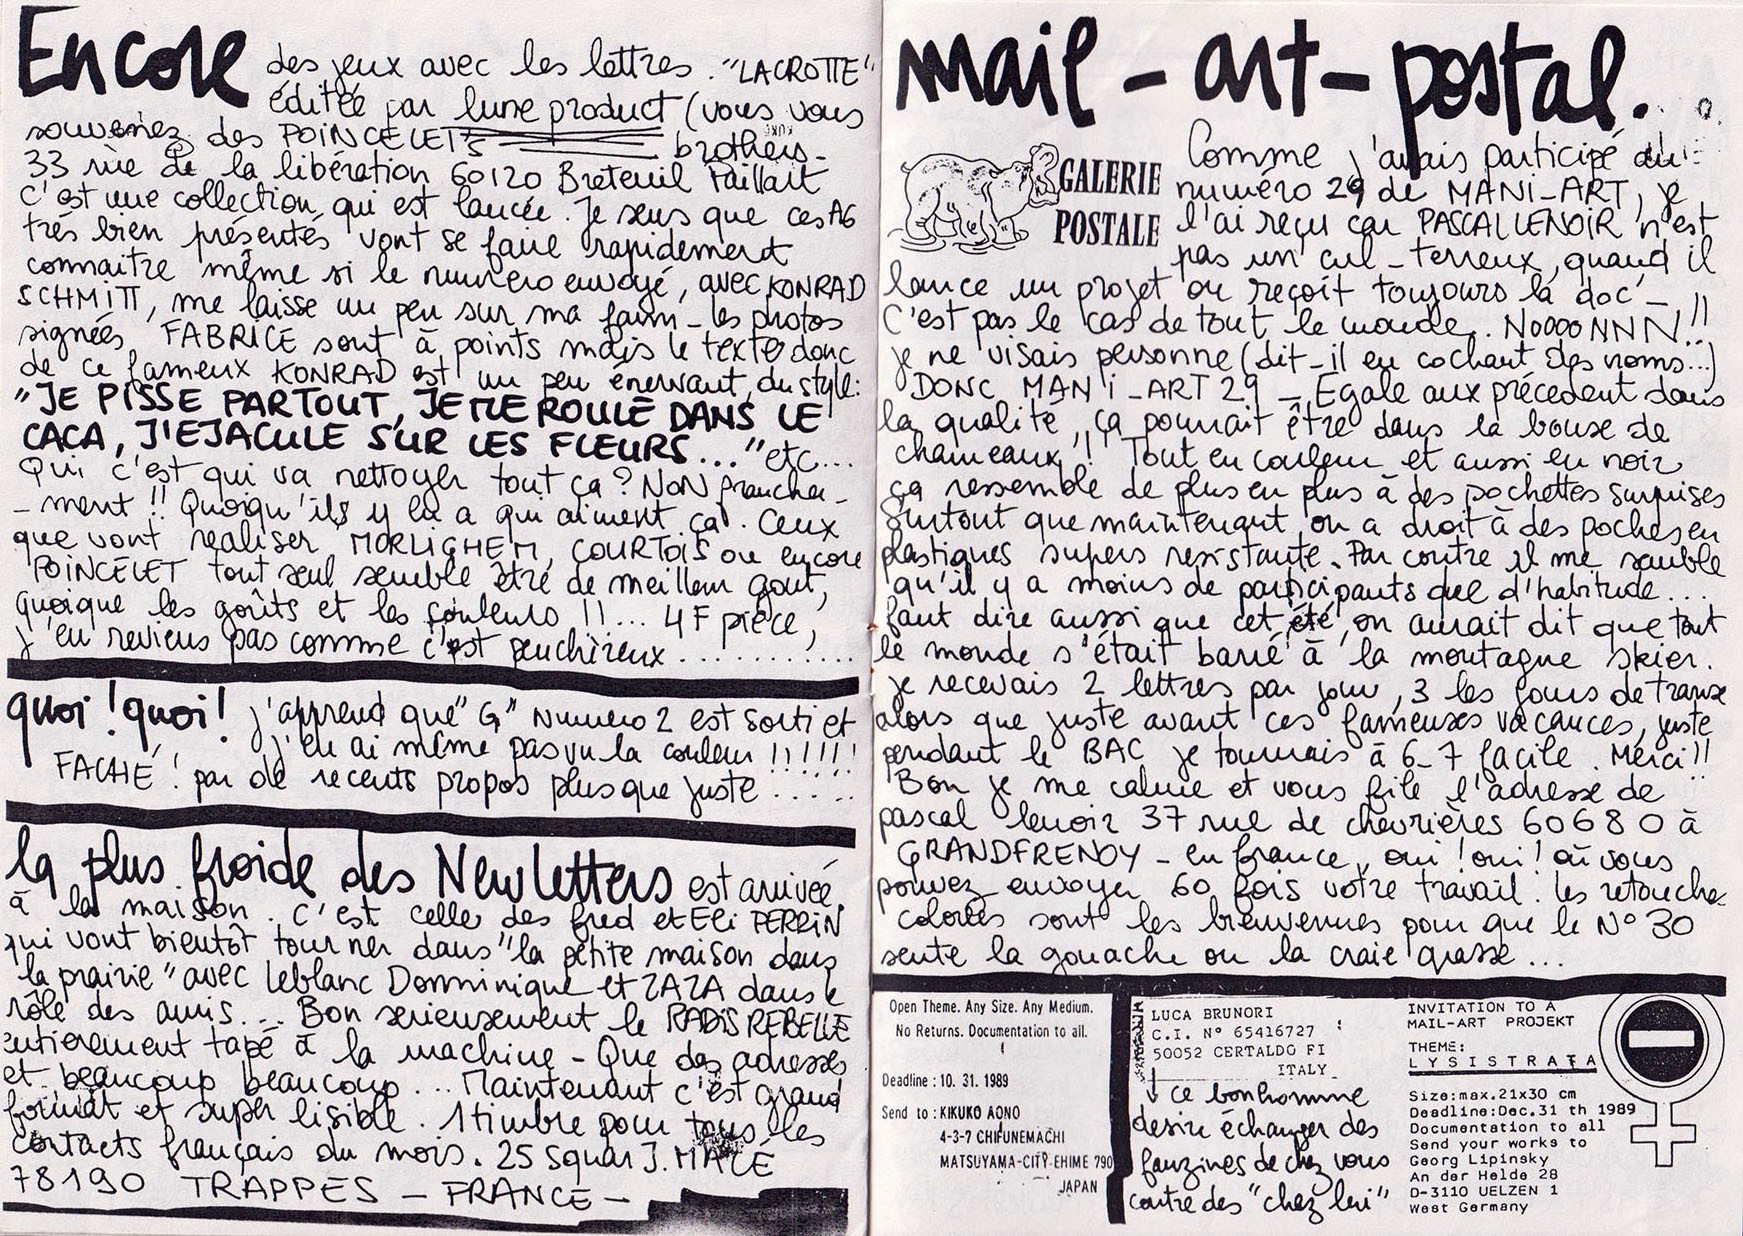 Encore des jeux avec les lettres. "LACROTTE"
éditée par lune product (vous vous
souvenez des POINCELETS brothers_
33 rue de la libération 60120 Breteuil
C'est une collection, qui est lancée. Je sens que ces A6
très bien présentés vont se faire rapidement
connaitre même si le numero envoyé, avec KONRAD
SCHMITT, me laisse un peu sur ma faim_ les photos
signées FABRICE sont à points mais le texte donc
de ce fameux KONRAD est un peu énervant, du style:
"JE PISSE PARTOUT, JE ME ROULE DANS LE
CACA, J'EJACULE SUR LES FLEURS..." etc...
Qui c'est qui va nettoyer tout ça? NON franche
_ment!! Quoiqu'ils y en a qui aiment ça. Ceux
que vont realiser MORLIGHEM, COURTOIS ou encore
POINCELET tout seul semble être de meilleur gout,
quoique les goûts et les couleurs!!... 4F pièce,
j'en reviens pas comme c'est peuchèreux............
quoi! quoi! j'apprend que "G" Numero 2 est sorti et
j'en ai même pas vu la couleur!!!!!!
FACHÉ! par de recents propos plus que juste.....
la plus froide des Newletters est arrivée
à la maison. C'est celle des fred et Eli PERRIN
qui vont bientôt tourner dans "la petite maison dans
la prairie" avec Leblanc Dominique et ZAZA dans le
rôle des amis... Bon serieusement le RADIS REBELLE
entierement tapé à la machine_ Que des adresses
et beaucoup beaucoup... Maintenant c'est grand
format et super lisible. 1 timbre pour tous les
contacts français du mois. 25 Squar J. MACÉ
78190 TRAPPES _ FRANCE _
mail-art-postal.
GALERIE
POSTALE
Comme j'avais participé au
numéro 29 de MANI_ART, je
l'ai reçu car PASCAL LENOIR n'est
pas un cul_terreux, quand il
lance un projet on reçoit toujours la doc_
C'est pas le cas de tout le monde. NOOOONNN!!
je ne visais personne (dit_il en cochant des noms...)
DONC MANI_ART 29 _ Egale aux précedent dans
la qualité, ça pourrait être dans la bouse de
chameaux!! Tout en couleur et aussi en noir
ça ressemble de plus en plus à des pochettes surprises
surtout que maintenant on a droit à des poches en
plastiques supers resistante. Par contre il me semble
qu'il y a moins de participants que d'habitude...
faut dire aussi que cet été, on aurait dit que tout
le monde s'était barré à la montagne skier.
je recevais 2 lettres par jour, 3 les jours de transe
alors que juste avant ces fameuses vacances, juste
pendant le BAC je tournais à 6_7 facile. Merci!!
Bon je me calme et vous file l'adresse de
pascal lenoir 37 rue de chevrières 60680 à
GRANDFRENOY _ en france, oui! oui! où vous
pouvez envoyer 60 fois votre travail. les retouches
colorées sont les bienvenues pour que le N° 30
sente la gouache ou la craie grasse...
Open Theme. Any Size. Any Medium.
No Returns. Documentation to all.
Deadline : 10. 31. 1989
Send to : KIKUKO AONO
4-3-7 CHIFUNEMACHI
MATSUYAMA-CITY EHIME 790
JAPAN
LUCA BRUNORI
C.I. N° 65416727
50052 CERTALDO FI
ITALY
ce bonhomme
desire échanger des
fanzines de chez vous
contre des "chez lui"
INVITATION TO A
MAIL-ART PROJEKT
THEME:
LYSISTRATA
Size:max.21x30 cm
Deadline:Dec.31 th 1989
Documentation to all
Send your works to
Georg Lipinsky
An der Helde 28
D-3110 UELZEN 1
West Germany